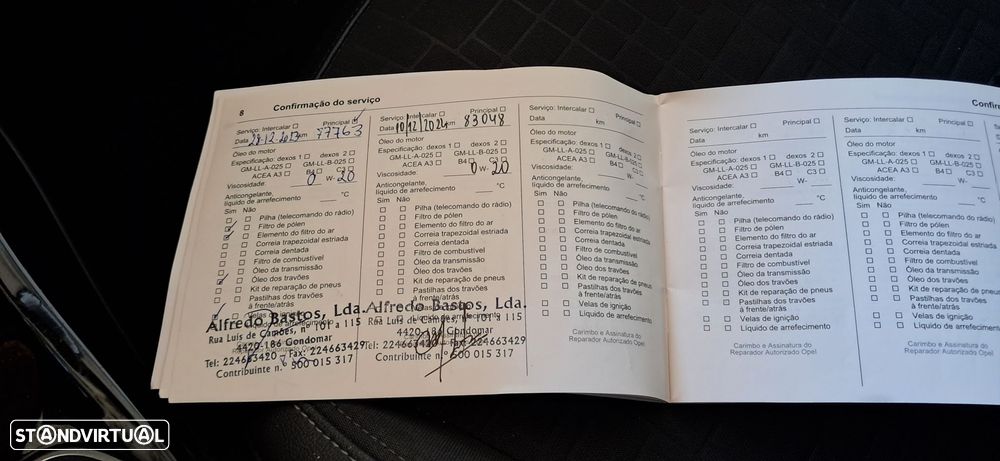 8 Confirmação do serviço
Serviço: Intercalar Principal
Data 28.12.2023 km 77763
Óleo do motor
Especificação: dexos 1 dexos 2
GM-LL-A-025 GM-LL-B-025
ACEA A3 B4 C3
Viscosidade: 0 W- 20
Anticongelante,
líquido de arrefecimento °C
Sim Não
Pilha (telecomando do rádio)
Filtro de pólen
Elemento do filtro do ar
Correia trapezoidal estriada
Correia dentada
Filtro de combustível
Óleo da transmissão
Óleo dos travões
Kit de reparação de pneus
Pastilhas dos travões
à frente/atrás
Velas de ignição
Alfredo Bastos, Lda.
Rua Luis de Camões, n.º 101 a 115
4420-186 Gondomar
Tel: 224663420 - Fax: 224663429
Contribuinte n.º 500 015 317
Serviço: Intercalar Principal
Data 10/12/2024 km 83048
Óleo do motor
Especificação: dexos 1 dexos 2
GM-LL-A-025 GM-LL-B-025
ACEA A3 B4 C3
Viscosidade: 0 W- 20
Anticongelante,
líquido de arrefecimento °C
Sim Não
Pilha (telecomando do rádio)
Filtro de pólen
Elemento do filtro do ar
Correia trapezoidal estriada
Correia dentada
Filtro de combustível
Óleo da transmissão
Óleo dos travões
Kit de reparação de pneus
Pastilhas dos travões
à frente/atrás
Alfredo Bastos, Lda.
Rua Luis de Camões, n.º 101 a 115
4420-186 Gondomar
Tel: 224663420 - Fax: 224663429
Contribuinte n.º 500 015 317
Serviço: Intercalar Principal
Data km
Óleo do motor
Especificação: dexos 1 dexos 2
GM-LL-A-025 GM-LL-B-025
ACEA A3 B4 C3
Viscosidade: W-
Anticongelante,
líquido de arrefecimento °C
Sim Não
Pilha (telecomando do rádio)
Filtro de pólen
Elemento do filtro do ar
Correia trapezoidal estriada
Correia dentada
Filtro de combustível
Óleo da transmissão
Óleo dos travões
Kit de reparação de pneus
Pastilhas dos travões
à frente/atrás
Velas de ignição
Líquido de arrefecimento
Carimbo e Assinatura do
Reparador Autorizado Opel
Serviço: Intercalar Principal
Data km
Óleo do motor
Especificação: dexos 1 dexos 2
GM-LL-A-025 GM-LL-B-025
ACEA A3 B4 C3
Viscosidade: W-
Anticongelante,
líquido de arrefecimento °C
Sim Não
Pilha (telecomando do rádio)
Filtro de pólen
Elemento do filtro do ar
Correia trapezoidal estriada
Correia dentada
Filtro de combustível
Óleo da transmissão
Óleo dos travões
Kit de reparação de pneus
Pastilhas dos travões
à frente/atrás
Velas de ignição
Líquido de arrefecimento
Carimbo e Assinatura do
Reparador Autorizado Opel
Serviço: Intercalar
Data km
Óleo do motor
Especificação: dexos 1
GM-LL-A-025
ACEA A3
Viscosidade:
Anticongelante,
líquido de arrefecimento
Sim Não
Pilha (telecomando
Filtro de pólen
Elemento do filtro
Correia trapezoidal
Correia dentada
Filtro de combustível
Óleo da transmissão
Óleo dos travões
Kit de reparação
Pastilhas dos travões
à frente/atrás
Velas de ignição
Líquido de arrefecimento
Carimbo e Assinatura
Reparador Autorizado
STANDVIRTUAL